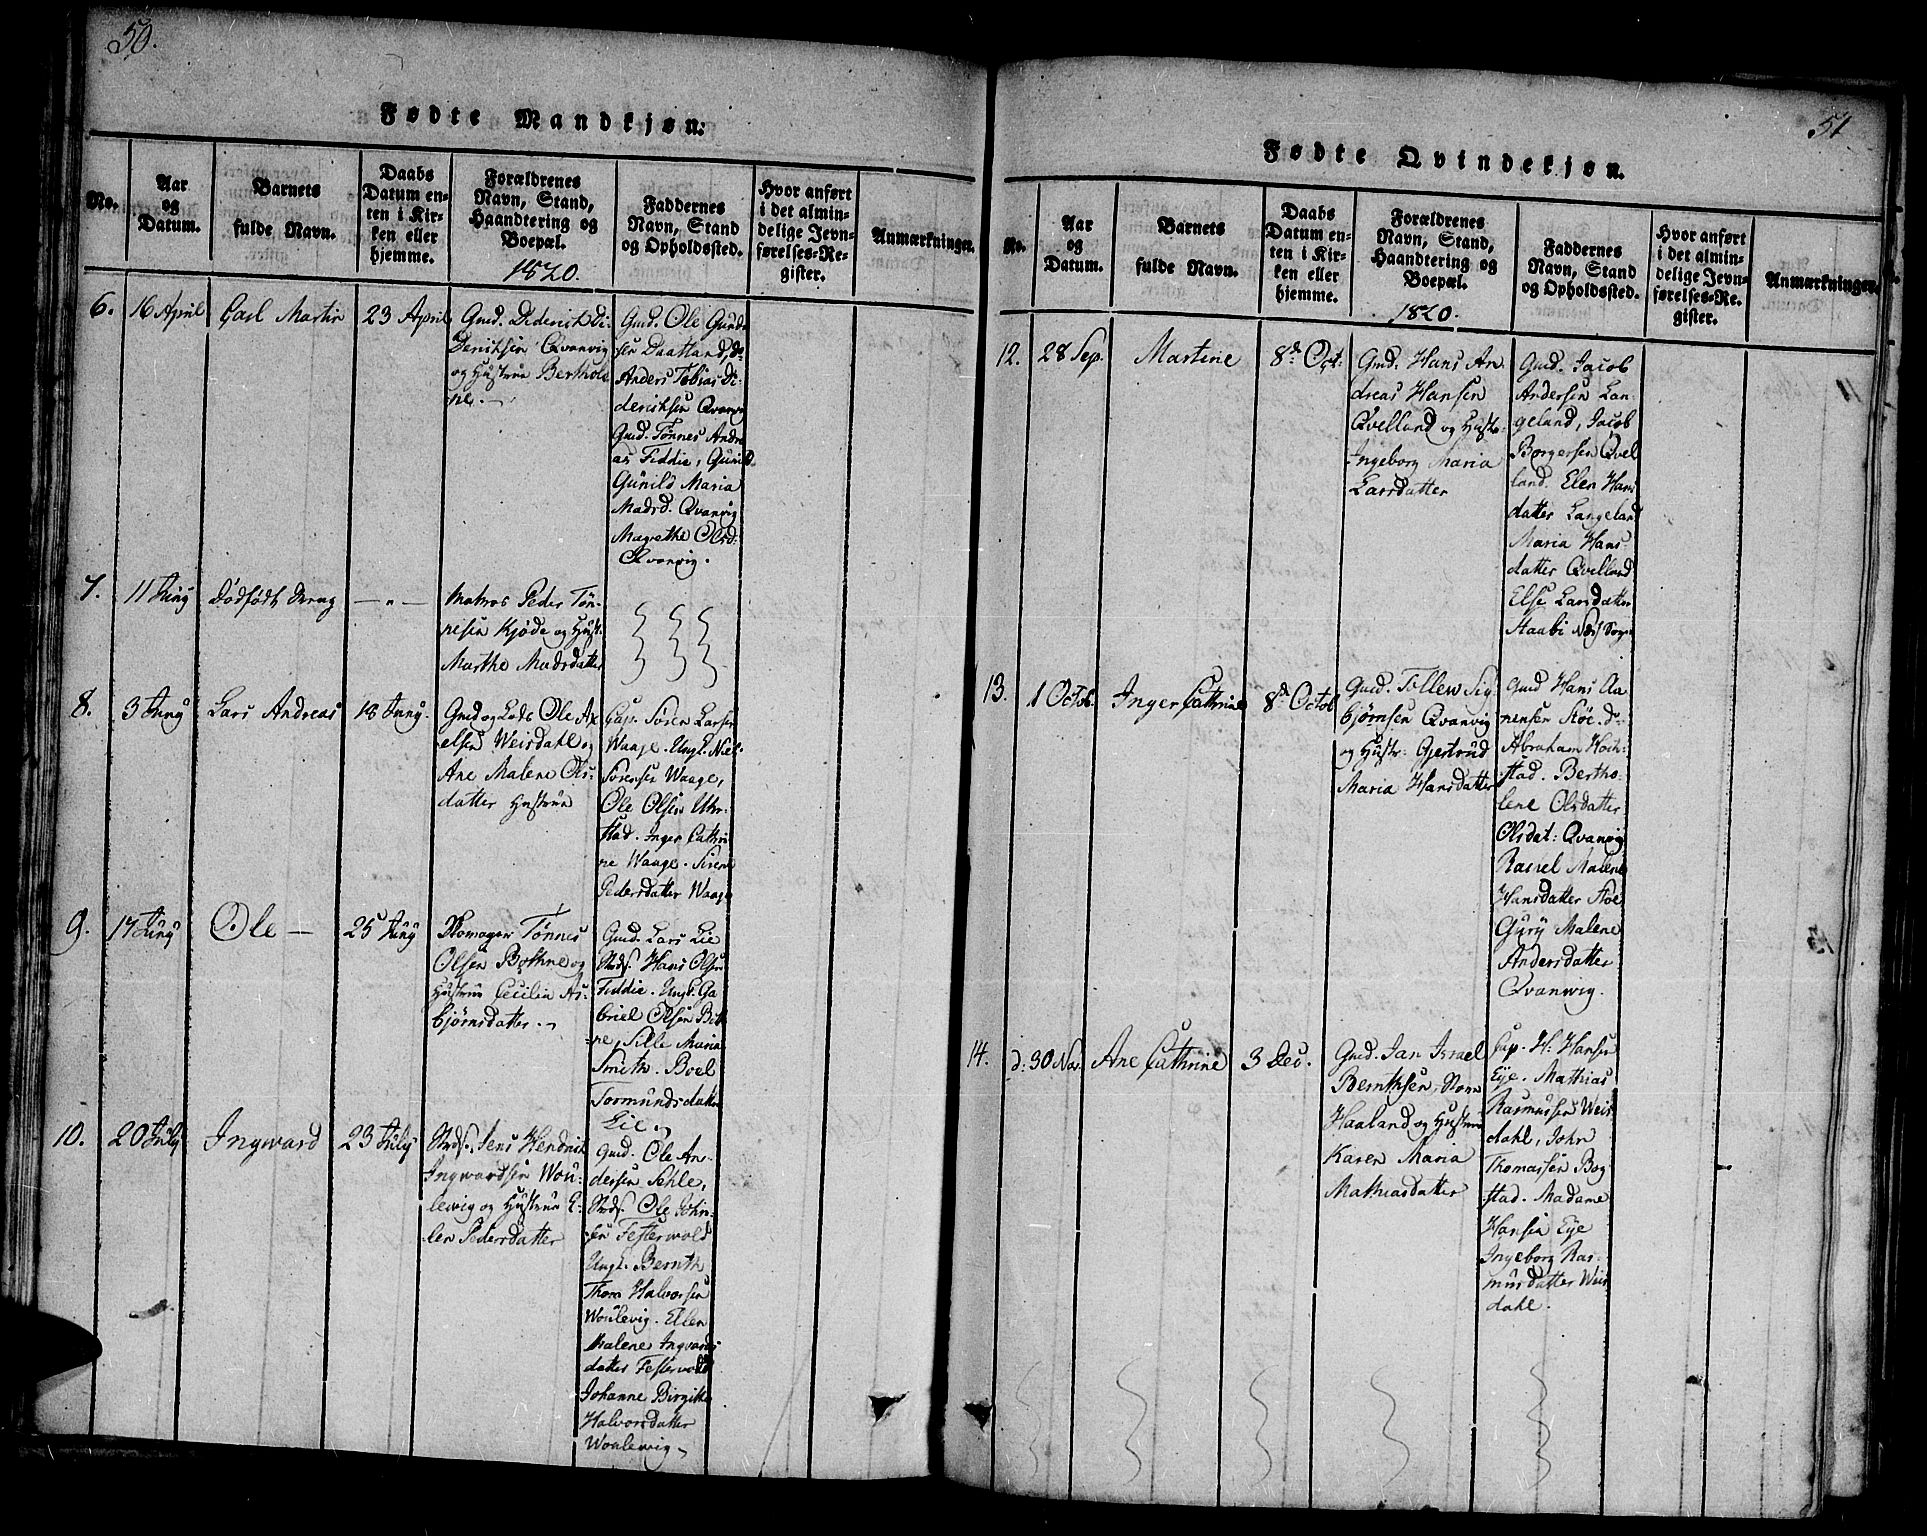 50.
Fødte Mandkjøn:
No.
Aar
og
Datum.
Barnets
fulde Navn.
Daabs
Datum en-
ten i Kir-
ken eller
hjemme.
Forældrenes
Navn, Stand,
Haandtering og
Boepæl.
1820.
Faddernes
Navn, Stand
og Opholdssted.
Hvor anført
i det almin-
delige Jevn-
førelses-Re-
gister.
Anmærkninger.
6.
16 April
Carl Martin
23 April
Gmd. Diderik Di-
deriksen Qvanvig
og Hustrue Bertholi
ne.
Gmd. Ole Gunds
sen Daatland, do
Anders Tobias Di-
deriksen Qvanvig
Gmd. Tönnes Andre
as Feddie, Gunild
Gunild Maria
Madsd. Qvanvig
Magrethe Olsd:
Qvanvig.
7.
11 Juny
Dödfödt Dreng
— „ —
Matros Peder Tön-
nesen Kjöde og Hust.
Marthe Madsdatter
8.
3 Juny
Lars Andreas
18 Juny.
Gmd og Lods Ole Ax
elsen Weisdahl og
Ane Malene Ols-
datter Hustrue
Cap. Sören Larsen
Waage. Ungk. Niels
Sörensen Waage,
Ole Olsen Uhr-
stad. Inger Cathri
ne Waage. Sirene
Pedersdatter Waage
9.
17 Juny
Ole —
25 Juny
Skomager Tönnes
Olsen Bothne og
Hustrue Cecilia As-
björnsdatter.
Gmd. Lars Lie
Strds. Hans Olsen
Feddie. Ungk. Ga
briel Olsen Both
ne, Sille Maria
Smith. Boel
Tormundsdatter
Lie.
10.
20 July
Ingward
23 July
Strds. Jens Hendrik
Ingwardsen Wou-
lewig og Hustrue E-
len Pedersdatter
Gmd. Ole An-
dersen Sehle,
Strds. Ole John-
sen Festerwold
Ungk. Bernth
Thom Halvorsen
Woulevig. Ellen
Malene Ingvards
datter Festervold
Johanne Birgitte
Halvorsdatter
Woulewig
51
Fødte Qvindekjøn.
No.
Aar
og
Datum.
Barnets
fulde Navn.
Daabs
Datum en-
ten i Kir-
ken eller
hjemme.
Forældrenes
Navn, Stand,
Haandtering og
Boepæl.
1820.
Faddernes
Navn, Stand
og Opholdssted.
Hvor anført
i det almin-
delige Jevn-
førelses-Re-
gister.
Anmærkninger.
12.
28 Sep.
Martine
8de Oct.
Gmd. Hans An
dreas Hansen
Qvelland og Hustr.
Ingeborg Maria
Larsdatter
Gmd. Jacob
Andersen Lan-
geland, Jacob
Borgersen Qvel
land. Elen Hans
datter Langeland
Maria Hans
datter Qvelland
Else Larsdatter
Staabi Næs Sogn
13.
1 Octob.
Inger Cathrine
8de Octob
Gmd. Tollew Sig
björnsen Qvanvig
og Hustr: Gjertrud
Maria Hansdatter
Gmd Hans Aa
nensen Stöe. do
Abraham Hoch-
stad. Bertho-
lene Olsdatter
Olsdat: Qvanvig
Rachel Malene
Hansdatter Stöe
Gury Malene
Andersdatter
Qvanwig.
14.
d: 30 Nov.
Ane Cathrine
3 Dec.
Gmd. Jan Israel
Bernthsen Store
Haaland og Hustrue
Karen Maria
Mathiasdatter
Cap. H: Hansen
Eye. Mathias
Rasmussen Weis
dahl, John
Thomassen Bog
stad. Madame
Hansin Eye
Ingeborg Ras-
musdatter Weis
dahl.